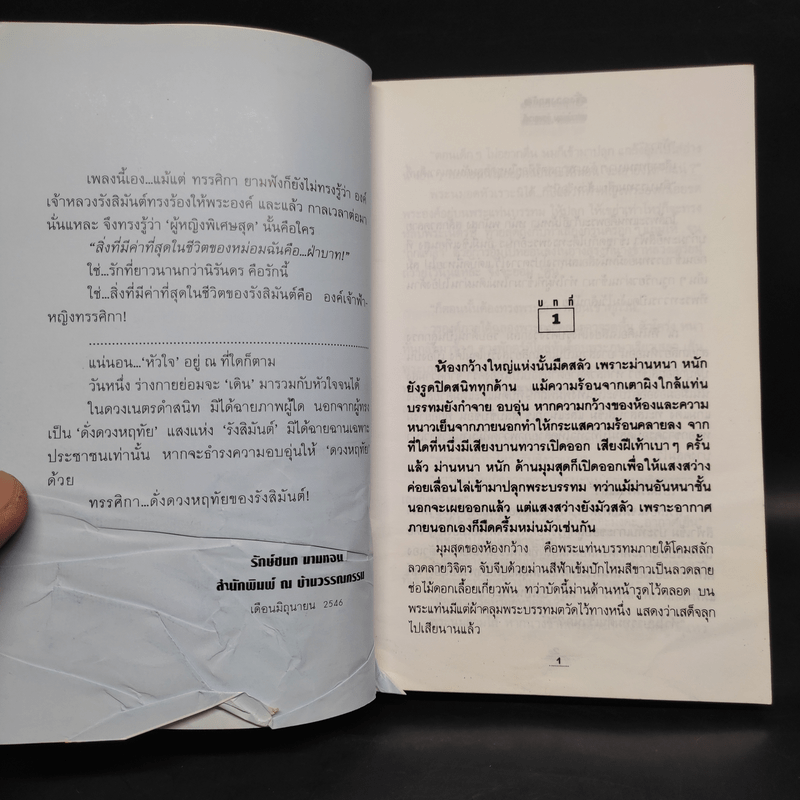 เพลงนี้เอง...แม้แต่ ทรรศิกา ยามฟังก็ยังไม่ทรงรู้ว่า องค์
เจ้าหลวงรังสิมันต์ทรงร้องให้พระองค์ และแล้ว กาลเวลาต่อมา
นั่นแหละ จึงทรงรู้ว่า ‘ผู้หญิงพิเศษสุด’ นั้นคือใคร
“สิ่งที่มีค่าที่สุดในชีวิตของหม่อมฉันคือ...ฝ่าบาท!”
ใช่...รักที่ยาวนานกว่านิรันดร คือรักนี้
ใช่...สิ่งที่มีค่าที่สุดในชีวิตของรังสิมันต์คือ องค์เจ้าฟ้า-
หญิงทรรศิกา!
แน่นอน...‘หัวใจ’ อยู่ ณ ที่ใดก็ตาม
วันหนึ่ง ร่างกายย่อมจะ ‘เดิน’ มารวมกับหัวใจจนได้
ในดวงเนตรดำสนิท มิได้ฉายภาพผู้ใด นอกจากผู้ทรง
เป็น ‘ดั่งดวงหฤทัย’ แสงแห่ง ‘รังสิมันต์’ มิได้ฉายฉานเฉพาะ
ประชาชนเท่านั้น หากจะธำรงความอบอุ่นให้ ‘ดวงหฤทัย’
ด้วย
ทรรศิกา...ดั่งดวงหฤทัยของรังสิมันต์!
รักษ์ชนก นามทอน
สำนักพิมพ์ ณ บ้านวรรณกรรม
เดือนมิถุนายน 2546
บทที่
1
ห้องกว้างใหญ่แห่งนั้นมืดสลัว เพราะม่านหนา หนัก
ยังรูดปิดสนิททุกด้าน แม้ความร้อนจากเตาผิงใกล้แท่น
บรรทมยังกำจาย อบอุ่น หากความกว้างของห้องและความ
หนาวเย็นจากภายนอกทำให้กระแสความร้อนคลายลง จาก
ที่ใดที่หนึ่งมีเสียงบานทวารเปิดออก เสียงฝีเท้าเบาๆ ครั้น
แล้ว ม่านหนา หนัก ด้านมุมสุดก็เปิดออกเพื่อให้แสงสว่าง
ค่อยเลื่อนไล่เข้ามาปลุกพระบรรทม ทว่าแม้ม่านอันหนาชั้น
นอกจะเผยออกแล้ว แต่แสงสว่างยังมัวสลัว เพราะอากาศ
ภายนอกเองก็มืดครึ้มหม่นมัวเช่นกัน
มุมสุดของห้องกว้าง คือพระแท่นบรรทมภายใต้โคมสลัก
ลวดลายวิจิตร จับจีบด้วยม่านสีฟ้าเข้มปักไหมสีขาวเป็นลวดลาย
ช่อไม้ดอกเลื้อยเกี่ยวพัน ทว่าบัดนี้ม่านด้านหน้ารูดไว้ตลอด บน
พระแท่นมีแต่ผ้าคลุมพระบรรทมตวัดไว้ทางหนึ่ง แสดงว่าเสด็จลุก
ไปเสียนานแล้ว
1